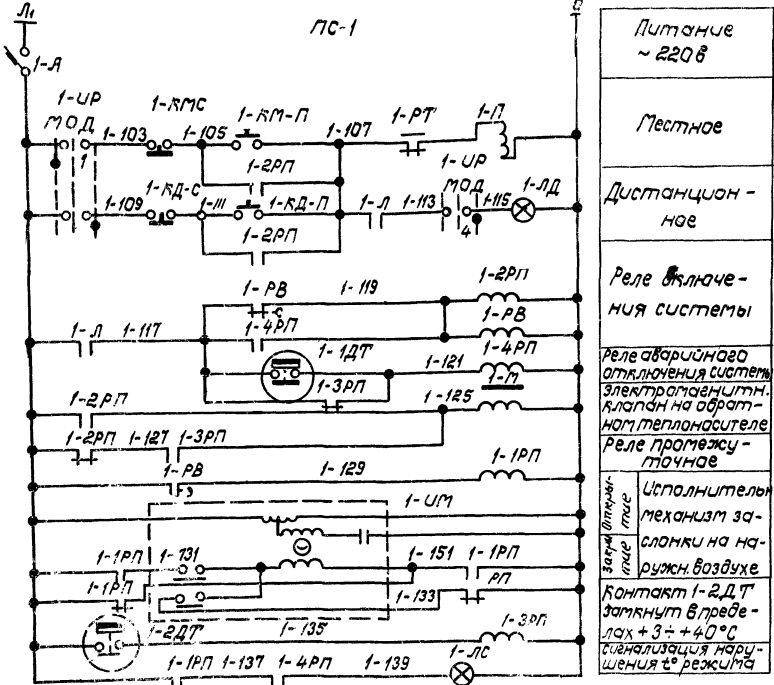 Л1
ПС-1
0
1-А
1-ИР
М О Д
1
1-103
1-КМС
1-105
1-КМ-П
1-107
1-РТ
1-П
1-2РП
1-109
1-КД-С
1-111
1-КД-П
1-Л
1-113
1-ИР
МОД
4
1-115
1-ЛД
1-2РП
1-РВ
1-119
1-2РП
1-Л
1-117
1-4РП
1-РВ
1-1ДТ
1-121
1-4РП
1-3РП
1-М
1-2РП
1-125
1-2РП
1-127
1-3РП
1-РВ
1-129
1-1РП
1-ИМ
1-1РП
1-131
1-151
1-1РП
1-1РП
1-133
РП
1-2ДТ
1-135
1-3РП
1-1РП
1-137
1-4РП
1-139
1-ЛС
Питание
~ 220в
Местное
Дистанцион-
ное
Реле включе-
ния системы
Реле аварийного
отключения системы
Электромагнитн.
клапан на обрат-
ном теплоносителе
Реле промежу-
точное
Откры-
тие
Закры-
тие
Исполнительн
механизм за-
слонки на на-
ружн. воздухе
Контакт 1-2ДТ
замкнут в преде-
лах +3÷+40°С
Сигнализация нару-
шения t° режима